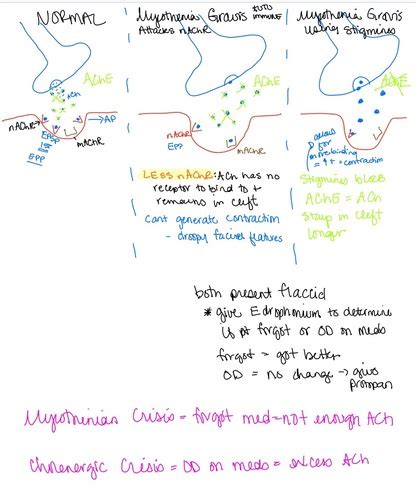 NORMAL
AChE
ACh
nAChR
AP
mAChR
EPP
Myasthenia Gravis
AUTO IMMUNE
Attacks nAChR
AChE
nAChR
mAChR
LESS nAChR: ACh has no
receptor to bind to +
remains in cleft
Can't generate contraction
- droopy facial features
Myasthenia Gravis
Using Stigmines
AChE
allows
for
more binding
= contraction
Stigmines block
AChE = ACh
stays in cleft
longer
both present flaccid
* give Edrophonium to determine
if pt forgot or OD on meds
forgot = got better
OD = no change → give
Myasthenian Crisis = forgot med = not enough ACh
Cholenergic Crisis = OD on meds = excess ACh